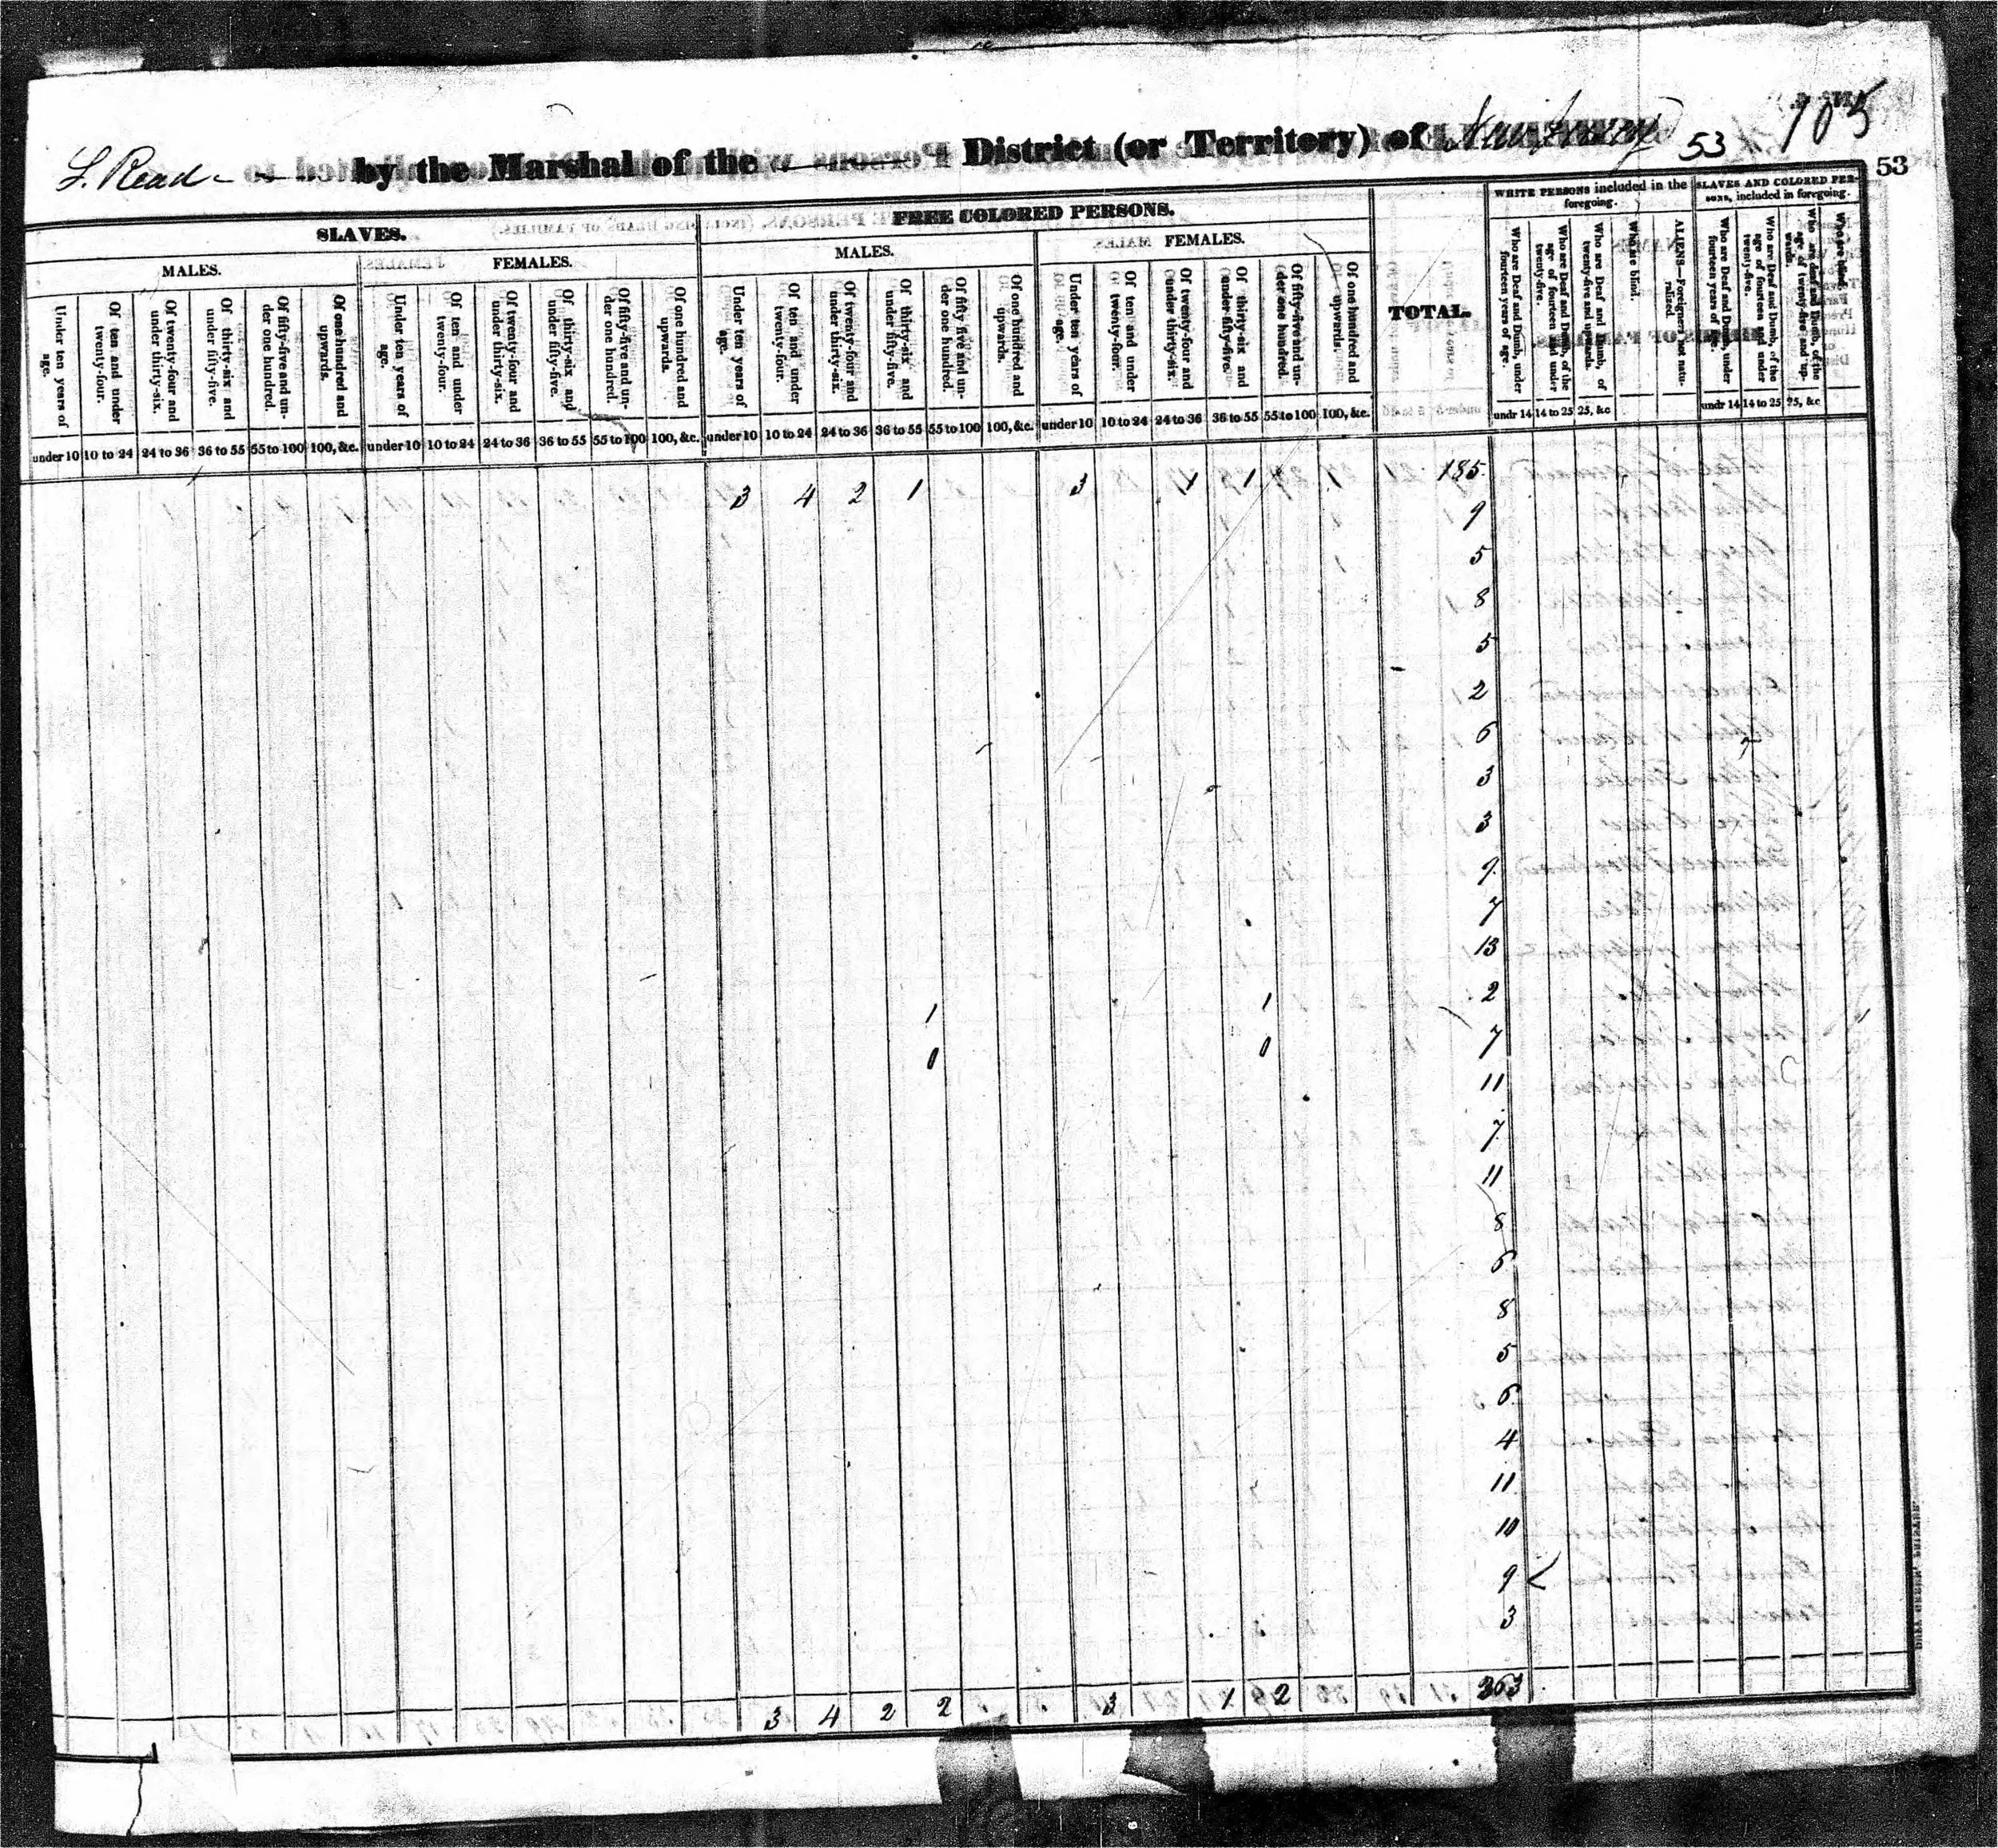 105
L. Read by the Marshal of the District (or Territory) of New Jersey 53 53
SLAVES. FREE COLORED PERSONS. TOTAL. WHITE PERSONS included in the foregoing. SLAVES AND COLORED PERSONS, included in foregoing.
MALES. FEMALES. MALES. FEMALES.
Under ten years of age.
Of ten and under twenty-four.
Of twenty-four and under thirty-six.
Of thirty-six and under fifty-five.
Of fifty-five and under one hundred.
Of one hundred and upwards.
Under ten years of age.
Of ten and under twenty-four.
Of twenty-four and under thirty-six.
Of thirty-six and under fifty-five.
Of fifty-five and under one hundred.
Of one hundred and upwards.
Under ten years of age.
Of ten and under twenty-four.
Of twenty-four and under thirty-six.
Of thirty-six and under fifty-five.
Of fifty five and under one hundred.
Of one hundred and upwards.
Under ten years of age.
Of ten and under twenty-four.
Of twenty-four and under thirty-six.
Of thirty-six and under fifty-five.
Of fifty-five and under one hundred.
Of one hundred and upwards.
Who are Deaf and Dumb, under fourteen years of age.
Who are Deaf and Dumb, of the age of fourteen and under twenty-five.
Who are Deaf and Dumb, of twenty-five and upwards.
Who are blind.
ALIENS—Foreigners not naturalized.
Who are Deaf and Dumb, under fourteen years of age.
Who are Deaf and Dumb, of the age of fourteen and under twenty-five.
Who are deaf and Dumb, of the age of twenty-five and upwards.
Who are blind.
under 10 10 to 24 24 to 36 36 to 55 55 to 100 100, &c. under 10 10 to 24 24 to 36 36 to 55 55 to 100 100, &c. under 10 10 to 24 24 to 36 36 to 55 55 to 100 100, &c. under 10 10 to 24 24 to 36 36 to 55 55 to 100 100, &c. undr 14 14 to 25 25, &c undr 14 14 to 25 25, &c
3 4 2 1 3 1 1 185
9
5
8
5
2
6
3
3
9
7
13
1 1 2
0 0 7
11
7
11
8
6
8
5
6
4
11
10
9
3
3 4 2 2 3 1 2 363